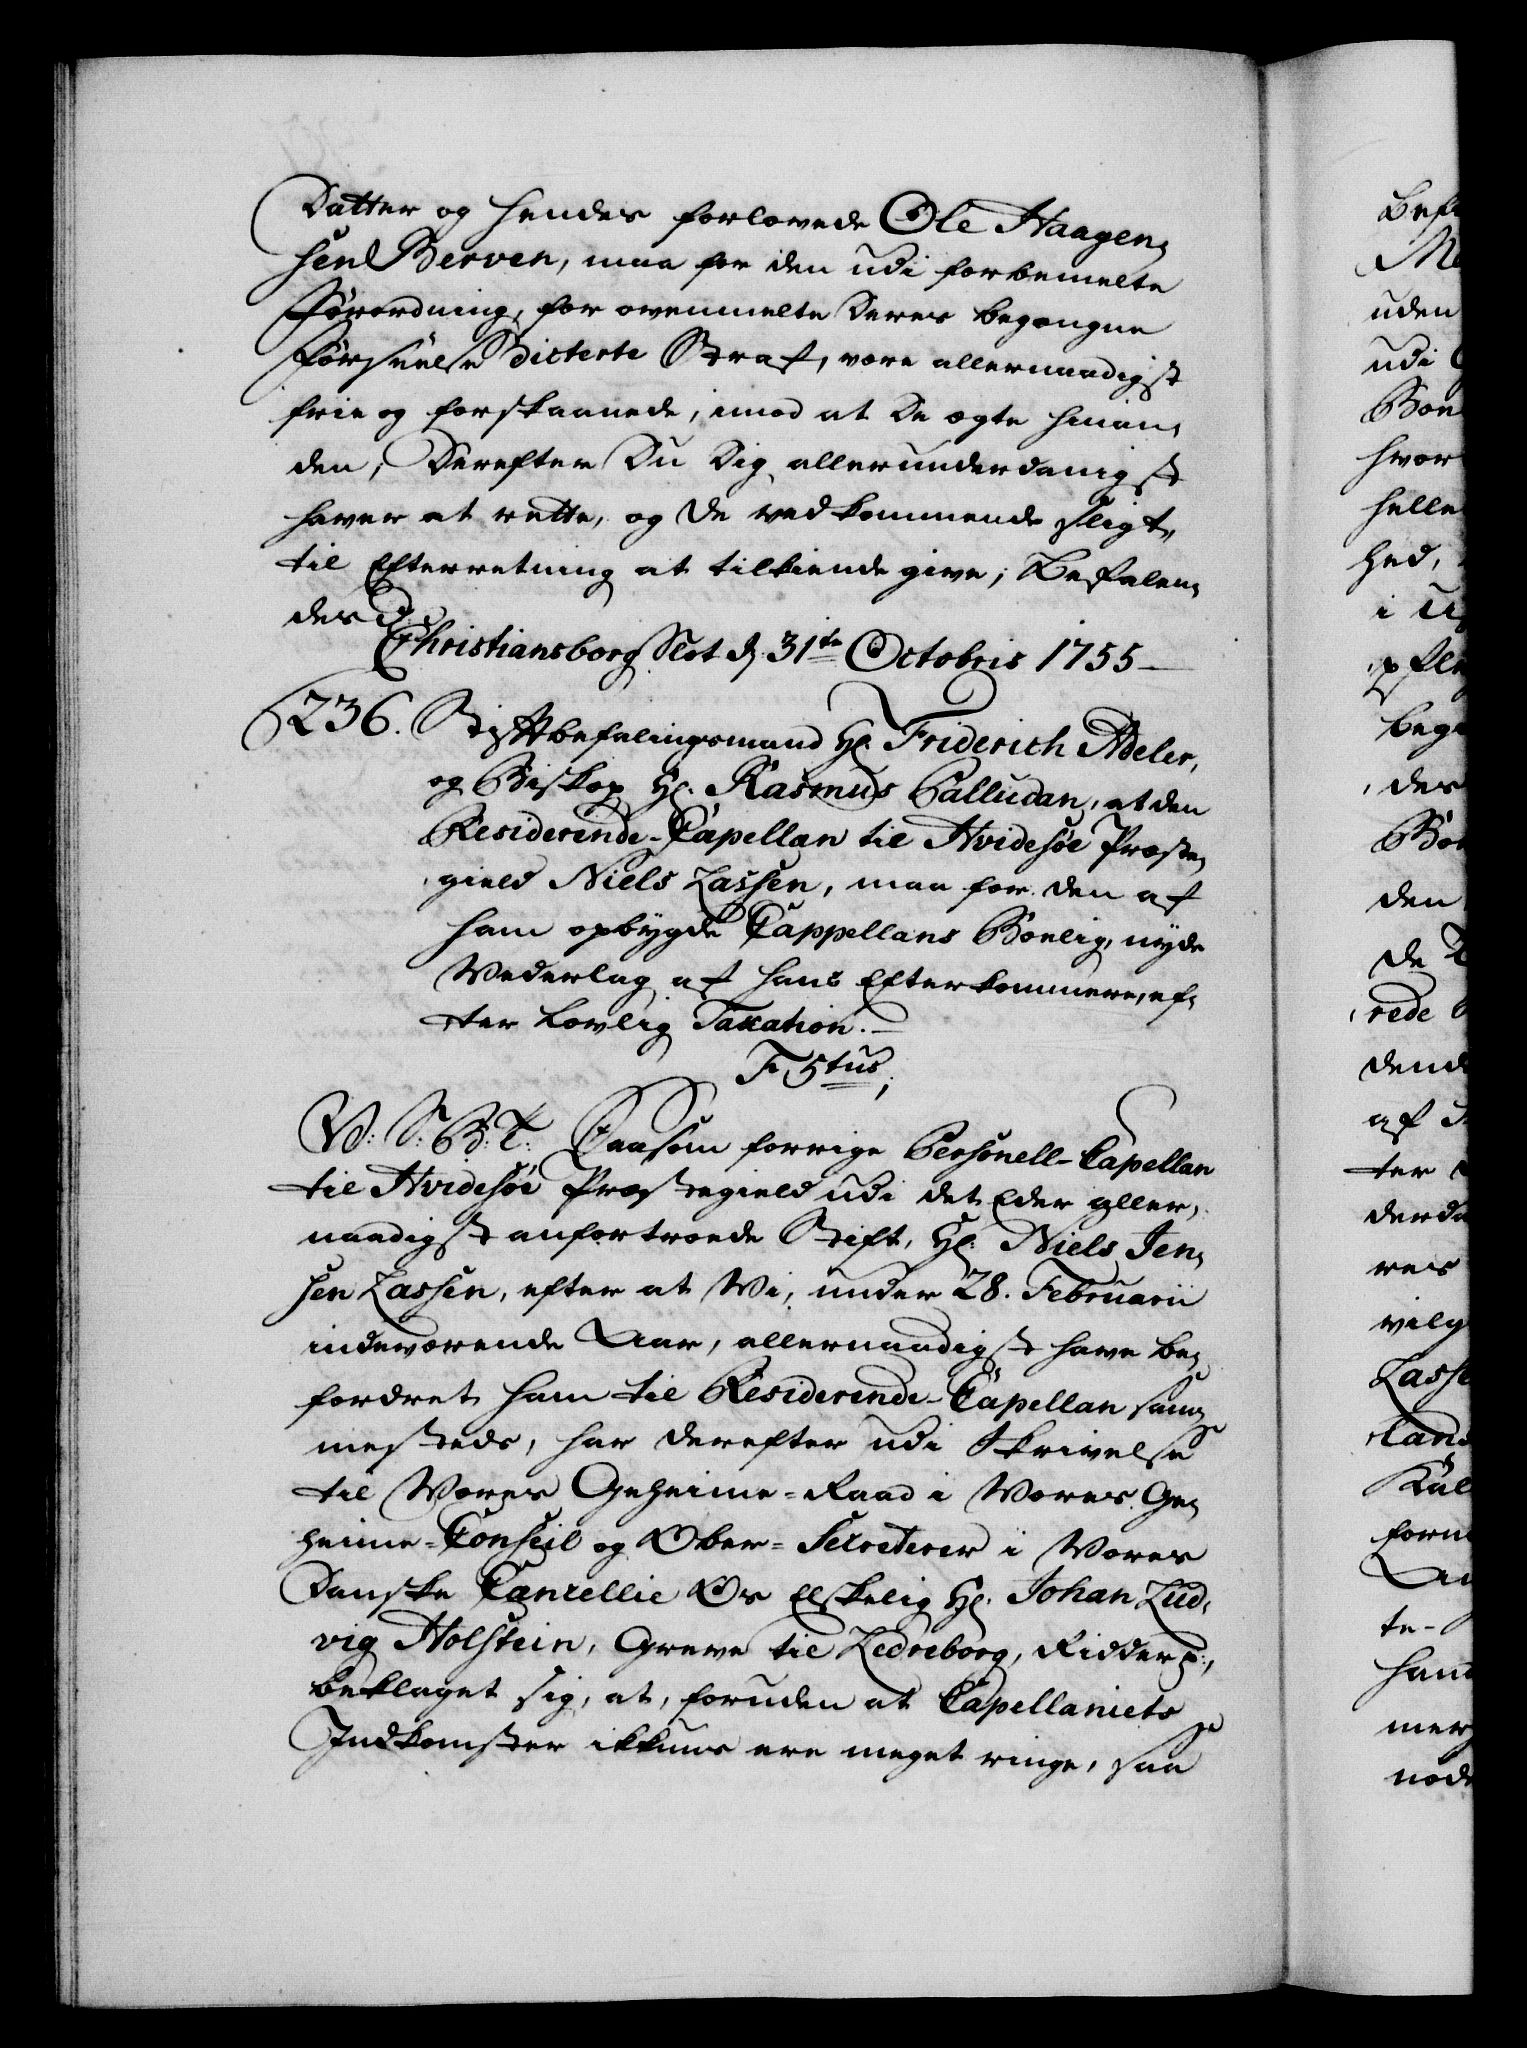 Datter og hendes forlovede Ole Haagen,
sen Berven, maa for den udi forbemelte
Forordning, for ovenmelte Deres begangne
Forseelse Dicterte Straf, være allernaadigst
frie og forskaanede, imod at De ægte hinan,
den, Derefter Du Dig allerunderdanigst
haver at rette, og De vedkommende sligt,
til Efterretning at tilkiende give; Befalen,
des
Christiansborg Slot d. 31te Octobris 1755
236. Stiftbefalingsmand Hr. Friderich Adeler,
og Biskop Hr. Rasmus Palludan, at den
Residerende-Capellan til Hvidesøe Præste,
gield Niels Lassen, maa for den af
ham opbygde Cappellans Boelig, nyde
Vederlag af hans Efterkommere, ef,
ter Lovlig Taxation.
F 5tus,
V: S: B: T: Saasom forrige Personell-Capellan
til Hvidesøe Præstegield udi det Eder aller,
naadigst anfortroede Stift, Hr. Niels Jen,
sen Lassen, efter at Vi, under 28. Februarii
indeværende Aar, allernaadigst have be,
fordret ham til Residerende-Capellan sam,
mesteds, har derefter udi Skrivelse
til Vores Geheime-Raad i Vores Ge,
heime-Conseil og Ober-Secreterer i Vores
Danske Cancellie Os Elskelig Hr. Johan Lud,
vig Holstein, Greve til Ledreborg, Ridder p:,
beklaget sig, at, foruden at Capellaniets
Indkomster ikkuns ere meget ringe, saa